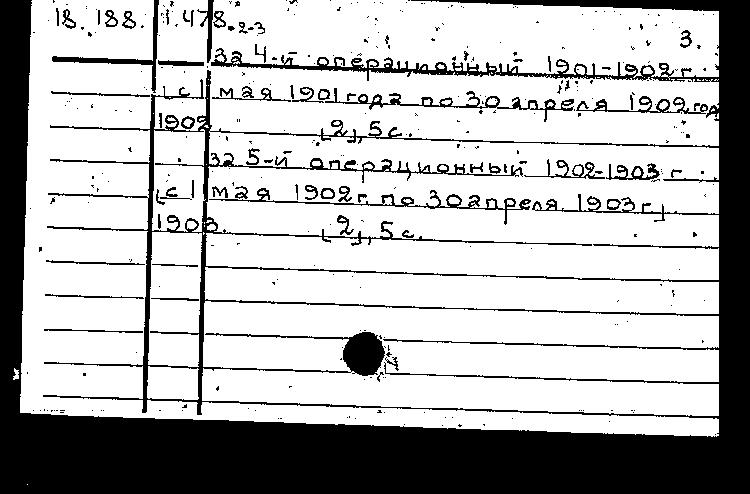 18.188.1.478.2-3 3.
за 4-й операционный 1901-1902 г.
[с 1 мая 1901 года по 30 апреля 1902 год
1902. [2], 5 с.
за 5-й операционный 1902-1903 г.
[с 1 мая 1902 г. по 30 апреля 1903 г.]
1903. [2], 5 с.